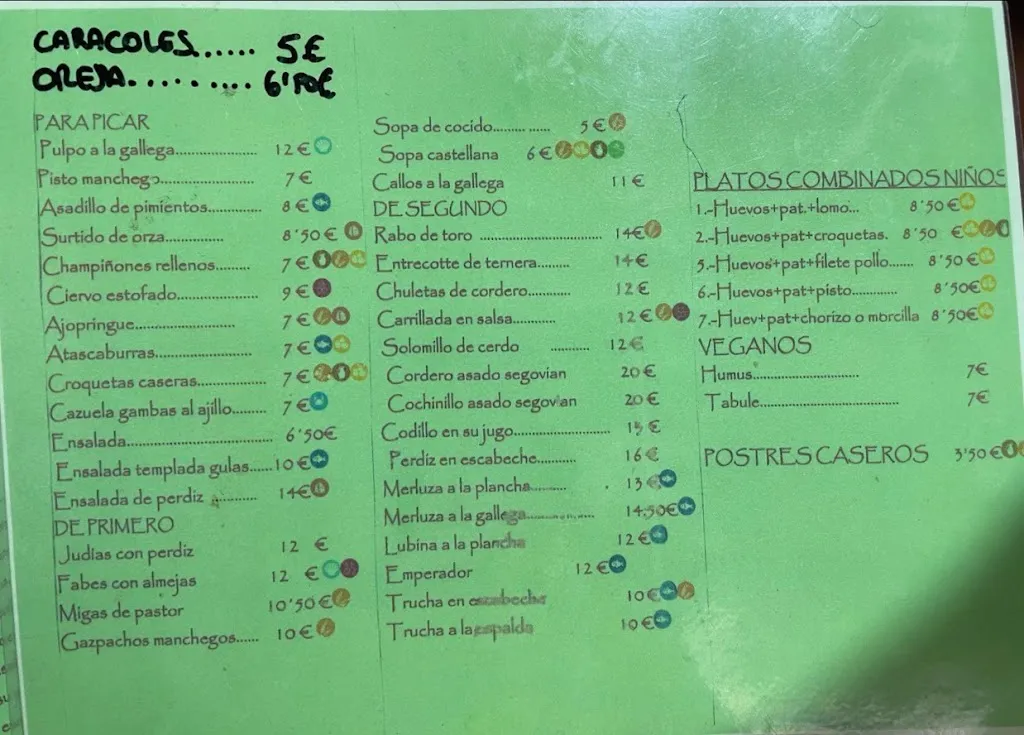 CARACOLES..... 5€
OREJA.......... 6'50€
PARA PICAR
Pulpo a la gallega........................ 12€
Pisto manchego........................ 7€
Asadillo de pimientos............ 8€
Surtido de orza............... 8'50€
Champiñones rellenos......... 7€
Ciervo estofado..................... 9€
Ajopringue.......................... 7€
Atascaburras......................... 7€
Croquetas caseras.................. 7€
Cazuela gambas al ajillo......... 7€
Ensalada...................................... 6'50€
Ensalada templada gulas...... 10€
Ensalada de perdiz ............ 14€
DE PRIMERO
Judías con perdiz 12 €
Fabes con almejas 12 €
Migas de pastor 10'50€
Gazpachos manchegos...... 10€
Sopa de cocido............... 5€
Sopa castellana 6€
Callos a la gallega 11€
DE SEGUNDO
Rabo de toro ................................ 14€
Entrecotte de ternera......... 14€
Chuletas de cordero............ 12€
Carrillada en salsa............ 12€
Solomillo de cerdo .......... 12€
Cordero asado segovian 20€
Cochinillo asado segovian 20€
Codillo en su jugo......................... €
Perdiz en escabeche.......... 16€
Merluza a la plancha.......... 13€
Merluza a la gallega.................. 14,50€
Lubina a la plancha 12€
Emperador 12€
Trucha en escabeche 10€
Trucha a la espalda 10€
PLATOS COMBINADOS NIÑOS
1.-Huevos+pat.+lomo... 8'50€
2.-Huevos+pat+croquetas. 8'50 €
5.-Huevos+pat+filete pollo....... 8'50€
6.-Huevos+pat+pisto............. 8'50€
7.-Huev+pat+chorizo o morcilla 8'50€
VEGANOS
Humus............................ 7€
Tabule..................................... 7€
POSTRES CASEROS 3'50€